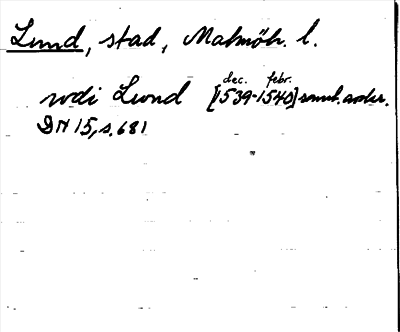 Lund, stad, Malmöh. l.
wdi Lwnd [dec. 1539-febr. 1540] samt. avskr.
DN 15, s. 681